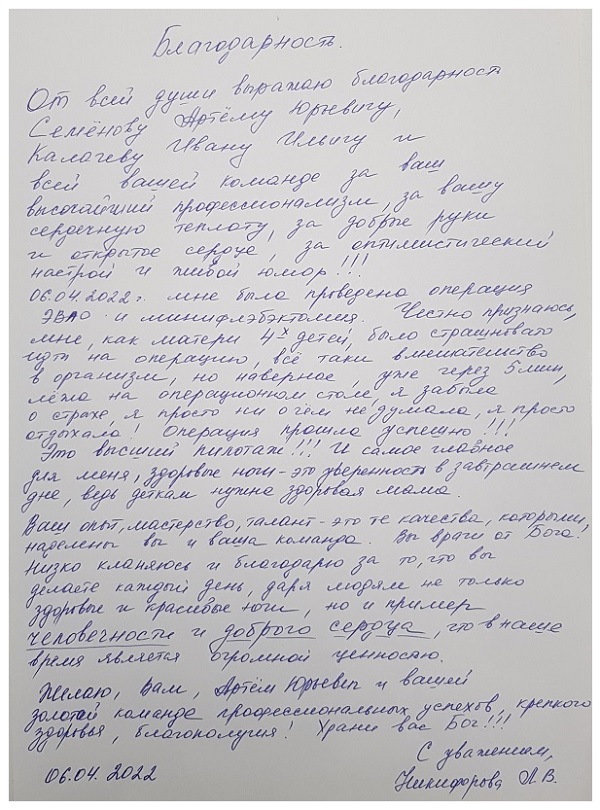 Благодарность.
От всей души выражаю благодарность
Семёнову Артёму Юрьевичу,
Калачеву Ивану Ильичу и
всей вашей команде за ваш
высочайший профессионализм, за вашу
сердечную теплоту, за добрые руки
и открытое сердце, за оптимистический
настрой и живой юмор!!!
06.04.2022г. мне была проведена операция
ЭВЛО и минифлебэктомия. Честно признаюсь,
мне, как матери 4х детей, было страшновато
идти на операцию, всё таки вмешательство
в организм, но наверное, уже через 5 мин,
лёжа на операционном столе, я забыла
о страхе, я просто ни о чём не думала, я просто
отдыхала! Операция прошла успешно!!!
Это высший пилотаж!!! И самое главное
для меня, здоровые ноги - это уверенность в завтрашнем
дне, ведь деткам нужна здоровая мама.
Ваш опыт, мастерство, талант - это те качества, которыми,
наделены вы и ваша команда. Вы врачи от Бога!
Низко кланяюсь и благодарю за то, что вы
делаете каждый день, даря людям не только
здоровые и красивые ноги, но и пример
человечности и доброго сердца, что в наше
время является огромной ценностью.
Желаю, Вам, Артём Юрьевич и вашей
золотой команде профессиональных успехов, крепкого
здоровья, благополучия! Храни вас Бог!!!
С уважением,
06.04.2022 Никифорова Л.В.